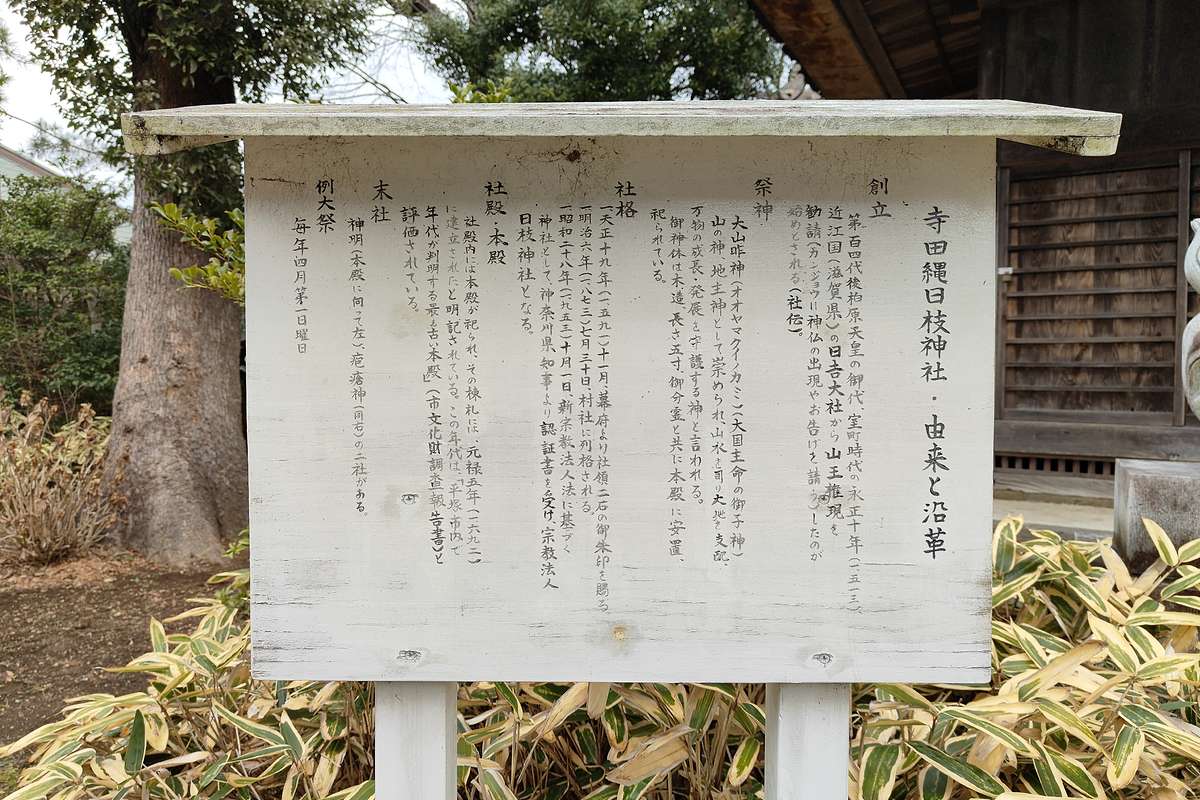 寺田縄日枝神社・由来と沿革
創立
第百四代後柏原天皇の御代、室町時代の永正十年(一五一三)、
近江国(滋賀県)の日吉大社から山王権現を
勧請(カンジョウ=神仏の出現やお告げを請う)したのが
始めとされる(社伝)。
祭神
大山昨神(オオヤマクイノカミ)(大国主命の御子神)
山の神、地主神として崇められ、山水を司り大地を支配、
万物の成長、発展を守護する神と言われる。
御神体は木造、長さ五寸、御分霊と共に本殿に安置、
祀られている。
社格
一天正十九年(一五九一)十一月、幕府より社領二石の御朱印を賜る。
一明治六年(一八七三)七月三十日、村社に列格される。
一昭和二十八年(一九五三)十月一日、新宗教法人法に基づく
神社として、神奈川県知事より認証書を受け、宗教法人
日枝神社となる。
社殿・本殿
社殿内には本殿が祀られ、その棟札には、元禄五年(一六九二)
に建立されたと明記されている。この年代は、「平塚市内で
年代が判明する最も古い本殿」(市文化財調査報告書)と
評価されている。
末社
神明(本殿に向って左)、疱瘡神(同右)の二社がある。
例大祭
毎年四月第一日曜日